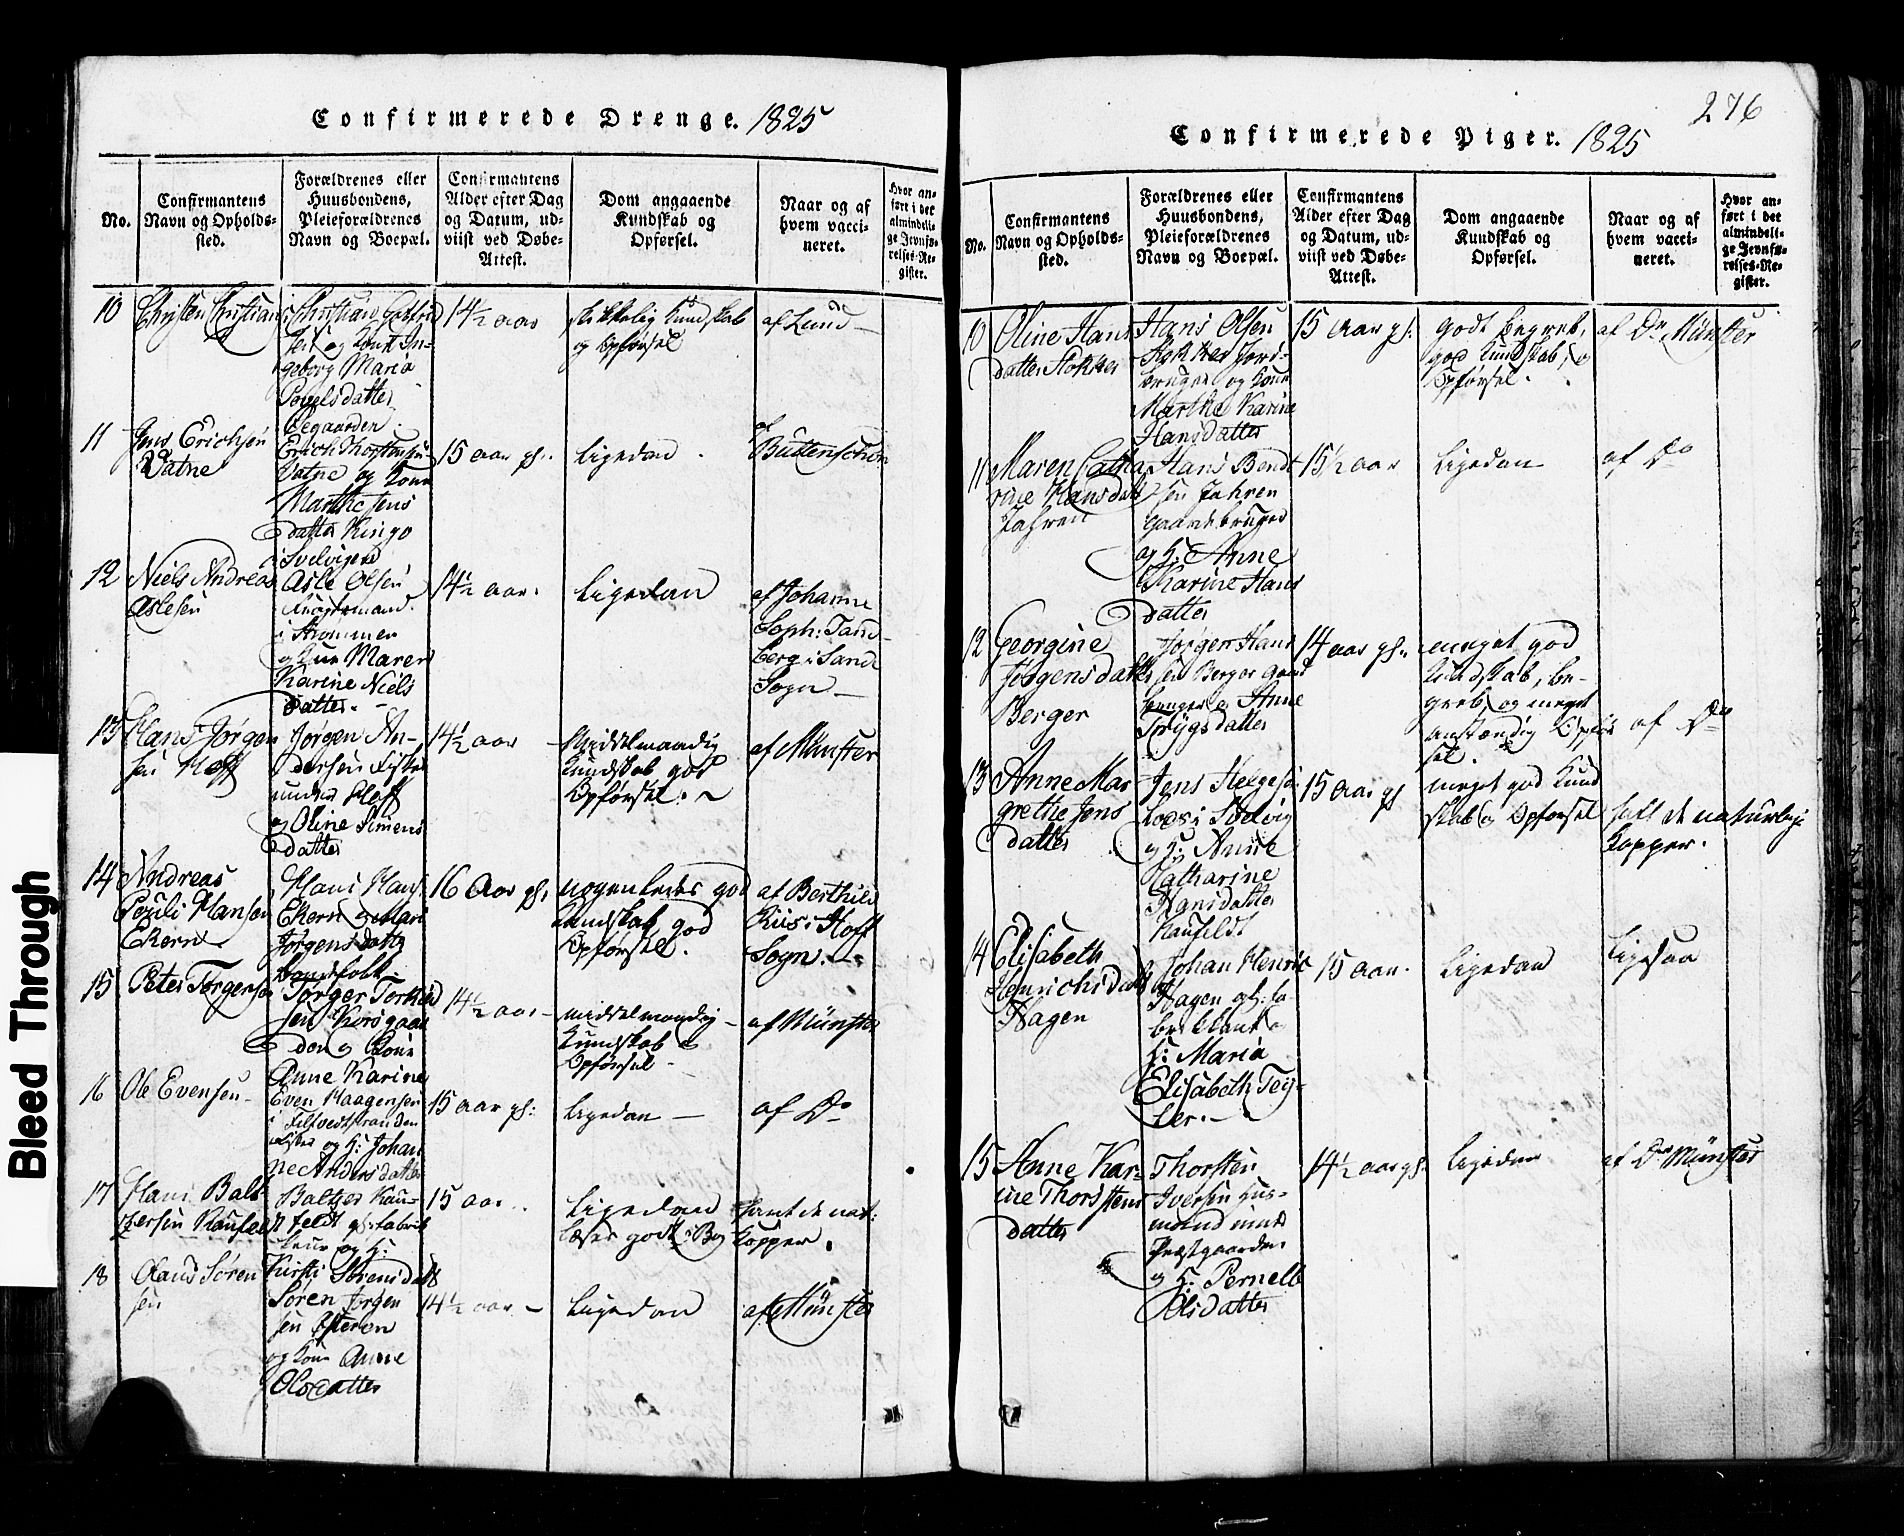 Bleed Through
Confirmerede Drenge. 1825
No.
Confirmantens
Navn og Opholds-
sted.
Forældrenes eller
Huusbondens,
Pleieforældrenes
Navn og Boepæl.
Confirmantens
Alder efter Dag
og Datum, ud-
viist ved Døbe-
Attest.
Dom angaaende
Kundskab og
Opførsel.
Naar og af
hvem vacci-
neret.
Hvor an-
ført i det
almindeli-
ge Jevnfø-
relses-Re-
gister.
10
Christen Christians
Christian
sen og Kone In-
geborg Maria
Povelsdatter
14½ aar
skikkelig Kundskab
og Opførsel
af Lund
11
Jens Erichsen
Vatne
Erich
Vatne og Kone
Marthe Jens
datter Kinge
i Svelvigen
15 aar gl.
Ligedan
af
Buttenschøn
12
Niels Andreas
Aslesen
Asle Olsen
i Strømmen
og Kone Maren
Karine Niels
datter.
14½ aar.
Ligedan
af Johanne
Soph: Tand-
berg i Sande
Sogn
13
Hans Jørgen
sen Hoff
Jørgen An-
dersen Fisker
under Hoff
og Oline Simens
datter
14½ aar
Middelmaadig
Kundskab god
Opførsel.
af Münster
14
Andreas
Pouli Hansen
Ekern
Hans Hans.
Ekern og Mari
Jørgensdatter
16 Aar gl.
nogenledes god
Kundskab, god
Opførsel.
af Berthild
Riis i Hoff
Sogn.
15
Peter Torgersen
Torger Torkild
sen Korsgaar
den og Kone
Anne Karine
14½ aar
middelmaadig
Kundskab og
Opførsel
af Münster
16
Ole Evensen
Even Haagensen
i Filtvedtstranden
Fisker og H: Johan
ne Andersdatter
15 aar gl:
Ligedan
af Do
17
Hans Balt
zersen Kaufeldt
Baltzer Kau-
feldt gl: Fabrik
og H:
Kirsti Sørensdatter
15 aar
Ligedan
læser godt i Bog
havt de nat:
Kopper.
18
Olaus Søren
sen
Søren Jørgen
sen Østeren
og Kone Anne
Olsdatter
14½ aar
Ligedan
af Münster
276
Confirmerede Piger. 1825
No.
Confirmantens
Navn og Opholds-
sted.
Forældrenes eller
Huusbondens,
Pleieforældrenes
Navn og Boepæl.
Confirmantens
Alder efter Dag
og Datum, ud-
viist ved Døbe-
Attest.
Dom angaaende
Kundskab og
Opførsel.
Naar og af
hvem vacci-
neret.
Hvor an-
ført i det
almindeli-
ge Jevnfø-
relses-Re-
gister.
10
Oline Hans
datter Stokker
Hans Olsen
Stokker Jord-
bruger og Kone
Marthe Karine
Hansdatter
15 Aar gl:
godt Begreb,
god Kundskab, og
Opførsel.
af Dr. Münster
11
Maren Catha
rine Hansdatt
Jahren
Hans Bendt
sen Jahren
Gaardbruger
og H: Anne
Karine Hans
datter
15½ aar
Ligedan
af Do
12
Georgine
Jørgensdatter
Berger
Jørgen Hans
sen Berger Gaard
bruger og Anne
Trygsdatter
14 aar gl.
meget god
Kundskab, Be-
greb, og meget
anstændig Opfør
sel.
af Do
13
Anne Mar
grethe Jens
datter
Jens Helgesen
Lods i Svelvig
og H: Anne
Katharine
Hansdatter
Kaufeldt
15 Aar gl
meget god Kund
skab og Opførsel
havt de naturlige
Kopper.
14
Elisabeth
Henrichsdatt
Hagen
Johan Henrik
Hagen gl: Fa-
brikant og
H: Maria
Elisabeth Tey-
ler.
15 aar.
Ligedan
Ligesaa
15
Anne Kar-
ine Thorstens
datter
Thorsten
Iversen Hus-
mand under
Præstgaarden
og H: Pernelle
Olsdatter
14½ aar gl.
Ligedan
af Dr Münster